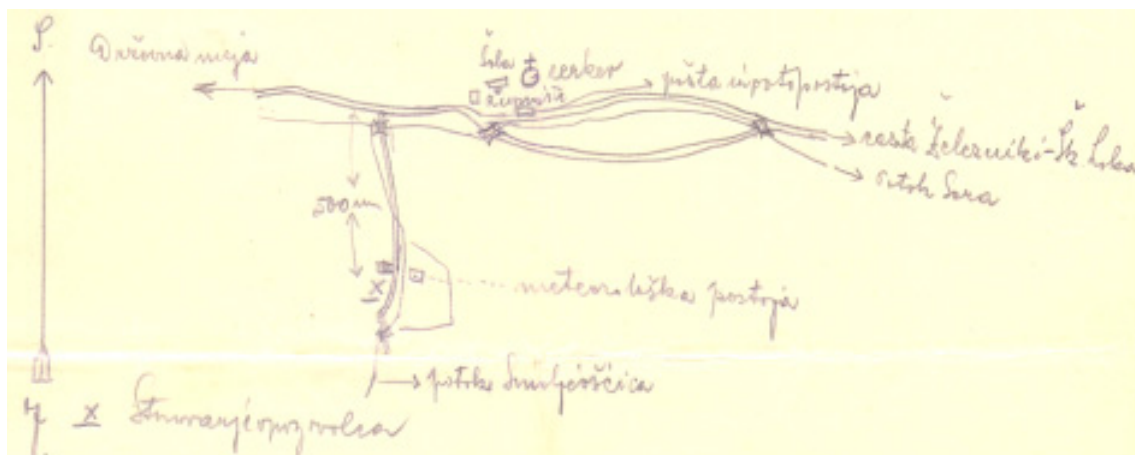 S.
Državna meja
Šola
cerkev
župnišče
pošta in
cesta Železniki-Šk. Loka
potok Sora
500 m
X
meteorološka postoja
potok
J
X Stanovanje opazovalca